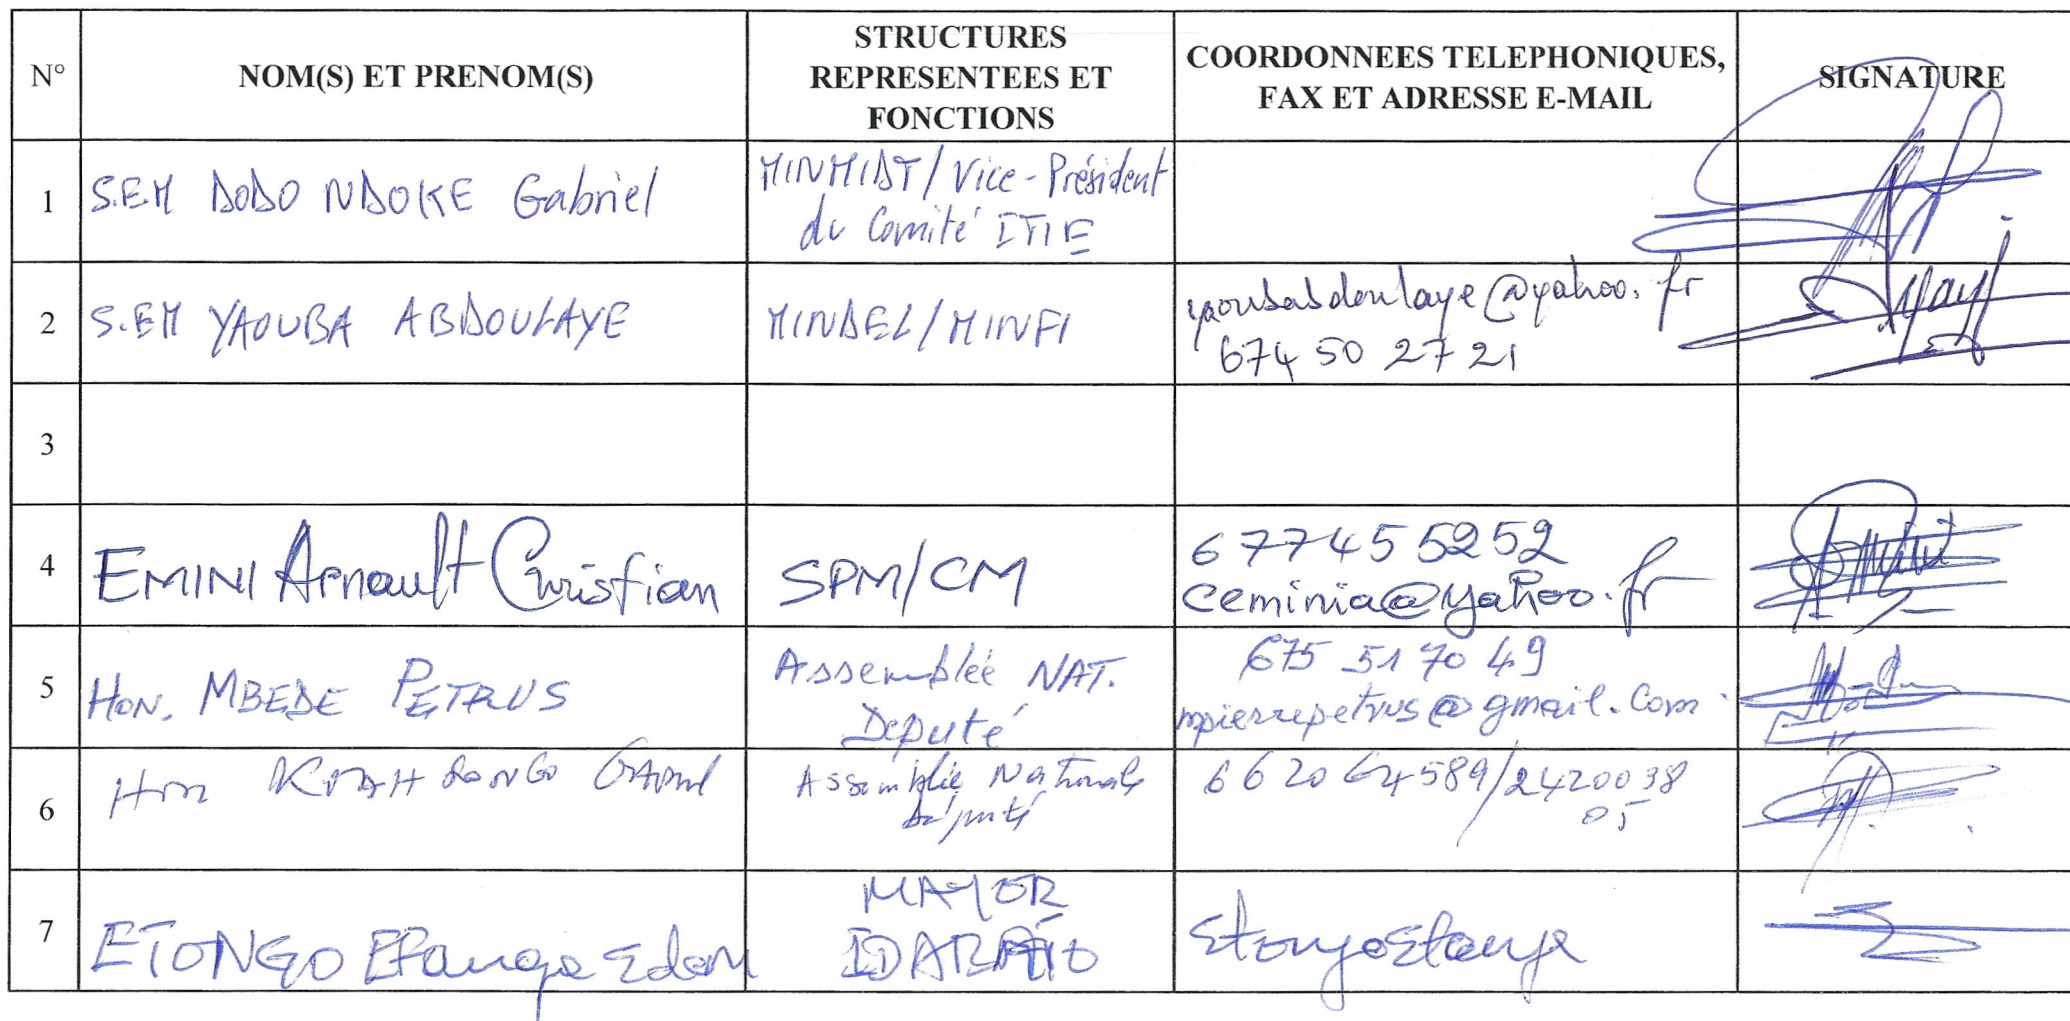 N°
NOM(S) ET PRENOM(S)
STRUCTURES
REPRESENTEES ET
FONCTIONS
COORDONNEES TELEPHONIQUES,
FAX ET ADRESSE E-MAIL
SIGNATURE
1
S.EM DODO NDOKE Gabriel
MINMIDT/Vice-Président
du Comité ITIE
2
S.EM YAOUBA ABDOULAYE
MINDEL/MINFI
yaoubabdoulaye@yahoo.fr
674 50 27 21
3
4
EMINI Arnault Christian
SPM/CM
677455252
ceminia@yahoo.fr
5
HON. MBEDE PETRUS
Assemblée NAT.
Député
675 51 70 49
mpierrepetrus@gmail.com
6
Hon
Assemblée Nationale
Député
662064589/2420038
05
7
ETONGO
MAYOR